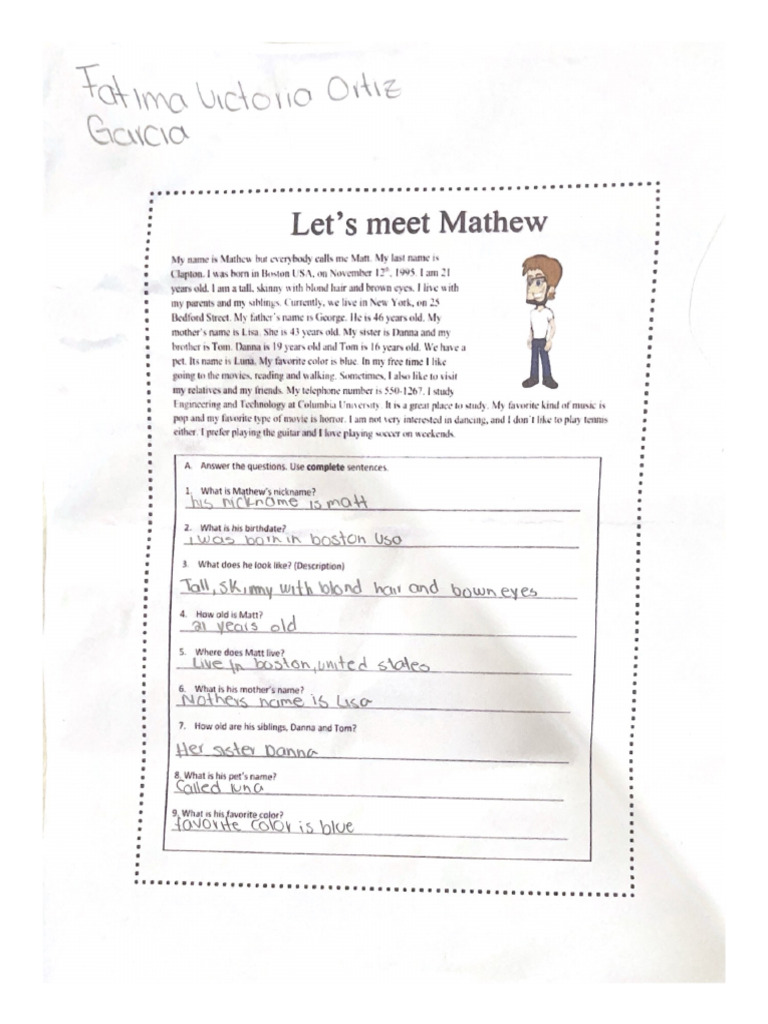 Fatima Victoria Ortiz
Garcia
Let's meet Mathew
My name is Mathew but everybody calls me Matt. My last name is
Clapton. I was born in Boston USA, on November 12th, 1995. I am 21
years old. I am a tall, skinny with blond hair and brown eyes. I live with
my parents and my siblings. Currently, we live in New York, on 25
Bedford Street. My father's name is George. He is 46 years old. My
mother's name is Lisa. She is 43 years old. My sister is Danna and my
brother is Tom. Danna is 19 years old and Tom is 16 years old. We have a
pet. Its name is Luna. My favorite color is blue. In my free time I like
going to the movies, reading and walking. Sometimes, I also like to visit
my relatives and my friends. My telephone number is 550-1267. I study
Engineering and Technology at Columbia University. It is a great place to study. My favorite kind of music is
pop and my favorite type of movie is horror. I am not very interested in dancing, and I don't like to play tennis
either. I prefer playing the guitar and I love playing soccer on weekends.
A. Answer the questions. Use complete sentences.
1. What is Mathew's nickname?
his nickname is matt
2. What is his birthdate?
i was born in boston usa
3. What does he look like? (Description)
Tall, skinny with blond hair and bown eyes
4. How old is Matt?
21 years old
5. Where does Matt live?
Live In boston, united states
6. What is his mother's name?
Nothers name is Lisa
7. How old are his siblings, Danna and Tom?
Her sister Danna
8. What is his pet's name?
Called luna
9. What is his favorite color?
favorite color is blue